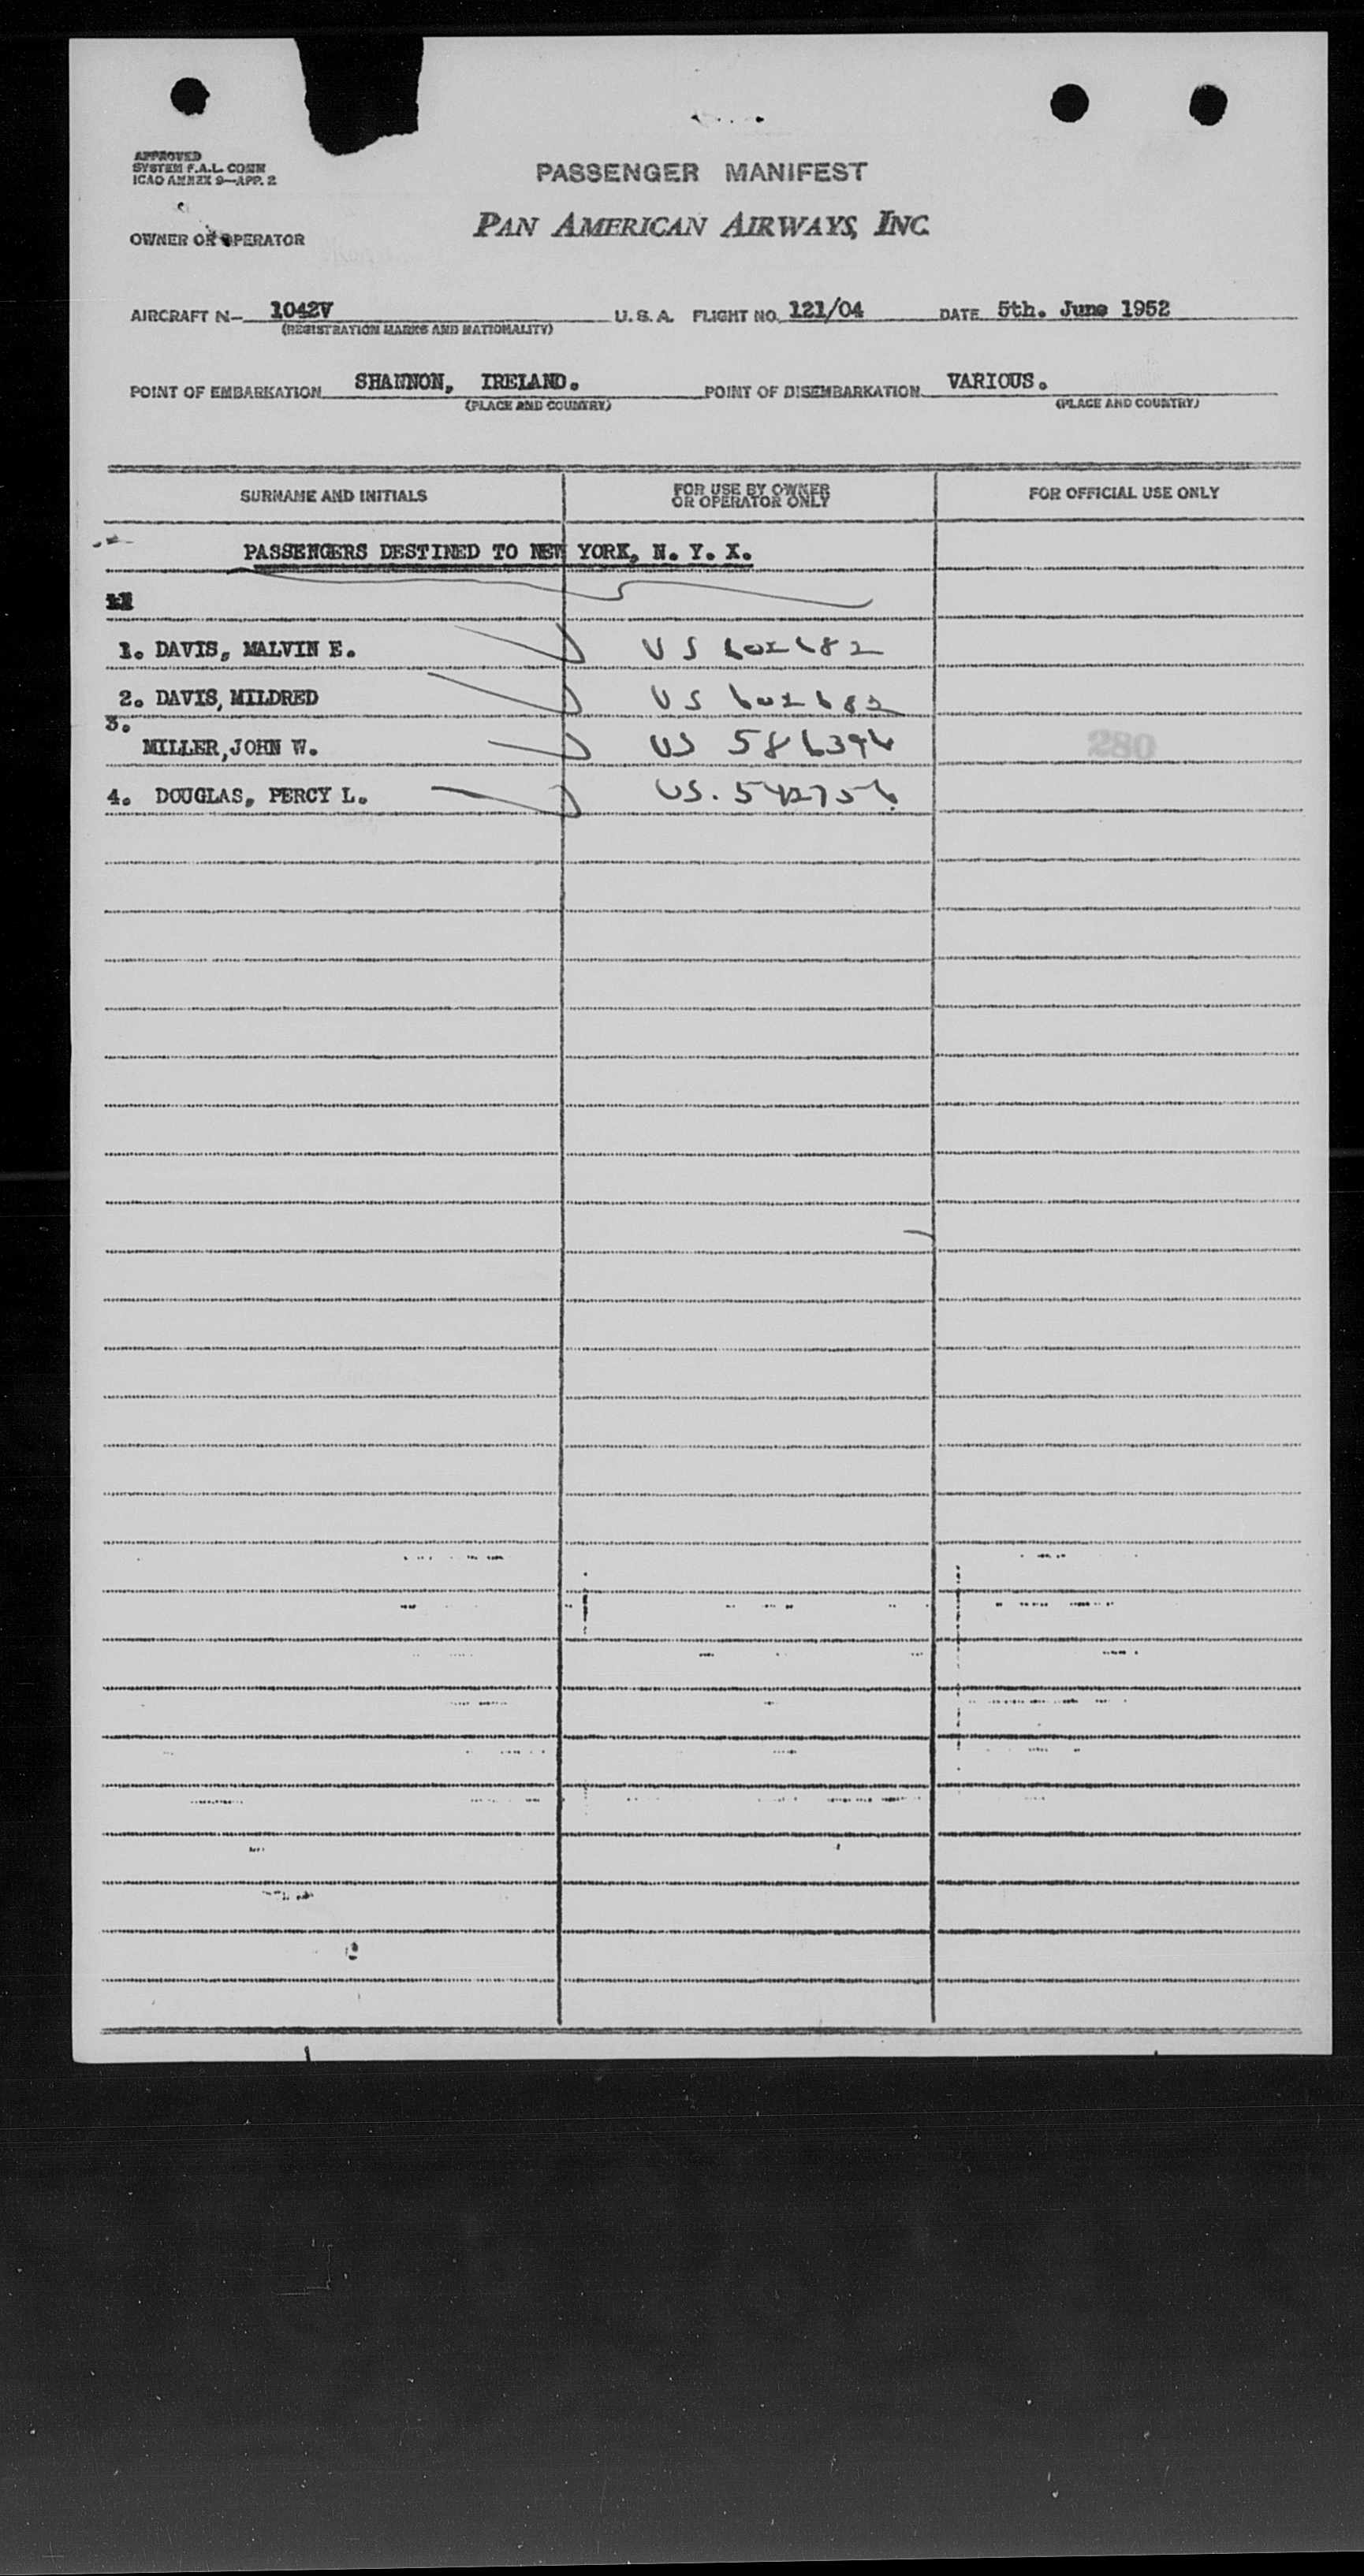 APPROVED
SYSTEM F.A.L. COMM
ICAO ANNEX 9—APP. 2
PASSENGER MANIFEST
OWNER OR OPERATOR
PAN AMERICAN AIRWAYS, INC.
AIRCRAFT N- 1042V U.S.A. FLIGHT NO. 121/04 DATE 5th. June 1952
(REGISTRATION MARKS AND NATIONALITY)
POINT OF EMBARKATION SHANNON, IRELAND. POINT OF DISEMBARKATION VARIOUS.
(PLACE AND COUNTRY) (PLACE AND COUNTRY)
SURNAME AND INITIALS FOR USE BY OWNER OR OPERATOR ONLY FOR OFFICIAL USE ONLY
PASSENGERS DESTINED TO NEW YORK, N. Y. X.
1. DAVIS, MALVIN E. US 602682
2. DAVIS, MILDRED US 602682
3.
MILLER,JOHN W. US 586396
4. DOUGLAS, PERCY L. US. 542756